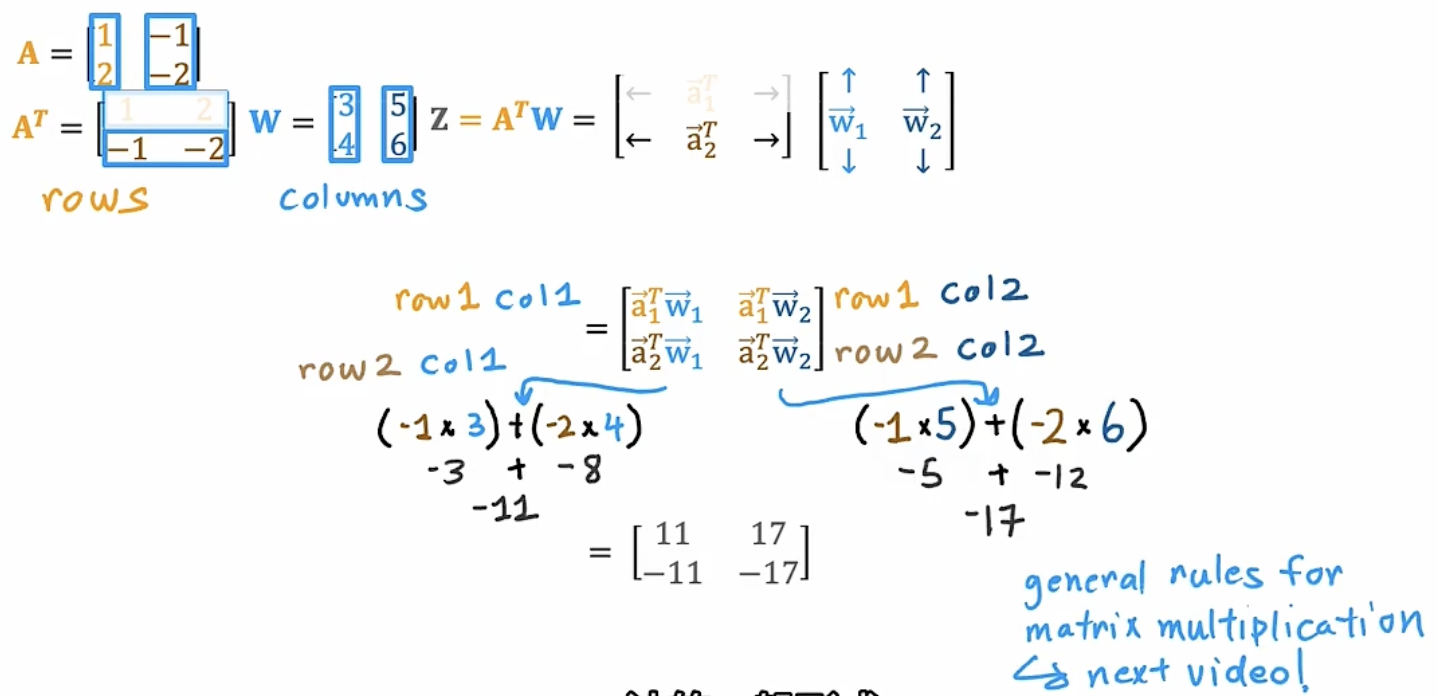 A = [1 -1
2 -2]
Aᵀ = [1 2
-1 -2] W = [3 5
4 6] Z = AᵀW = [← a⃗₁ᵀ →
← a⃗₂ᵀ →] [↑ ↑
w⃗₁ w⃗₂
↓ ↓]
rows columns
row1 col1 = [a⃗₁ᵀw⃗₁ a⃗₁ᵀw⃗₂] row1 col2
row2 col1 [a⃗₂ᵀw⃗₁ a⃗₂ᵀw⃗₂] row2 col2
(-1 × 3) + (-2 × 4) (-1 × 5) + (-2 × 6)
-3 + -8 -5 + -12
-11 -17
= [11 17
-11 -17]
general rules for
matrix multiplication
↪ next video!